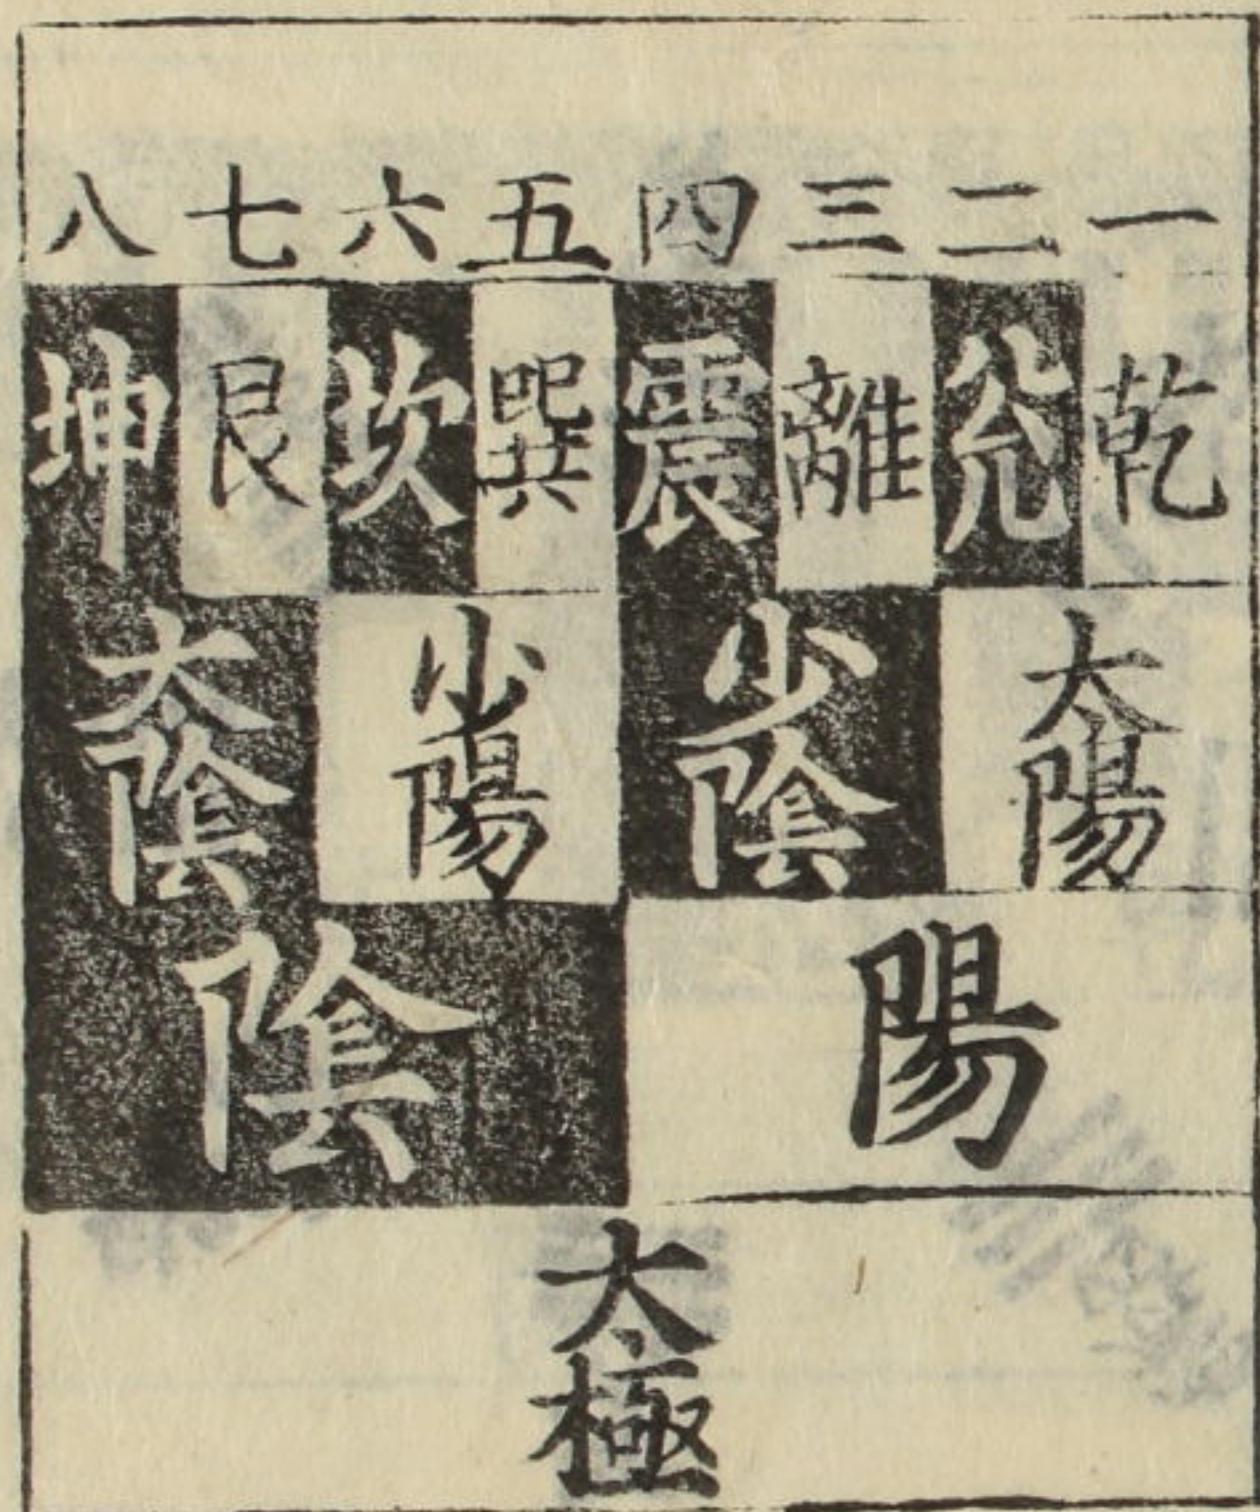 一二三四五六七八
乾兊離震巽坎艮坤
太陽 少陰 少陽 太陰
陽 陰
太極